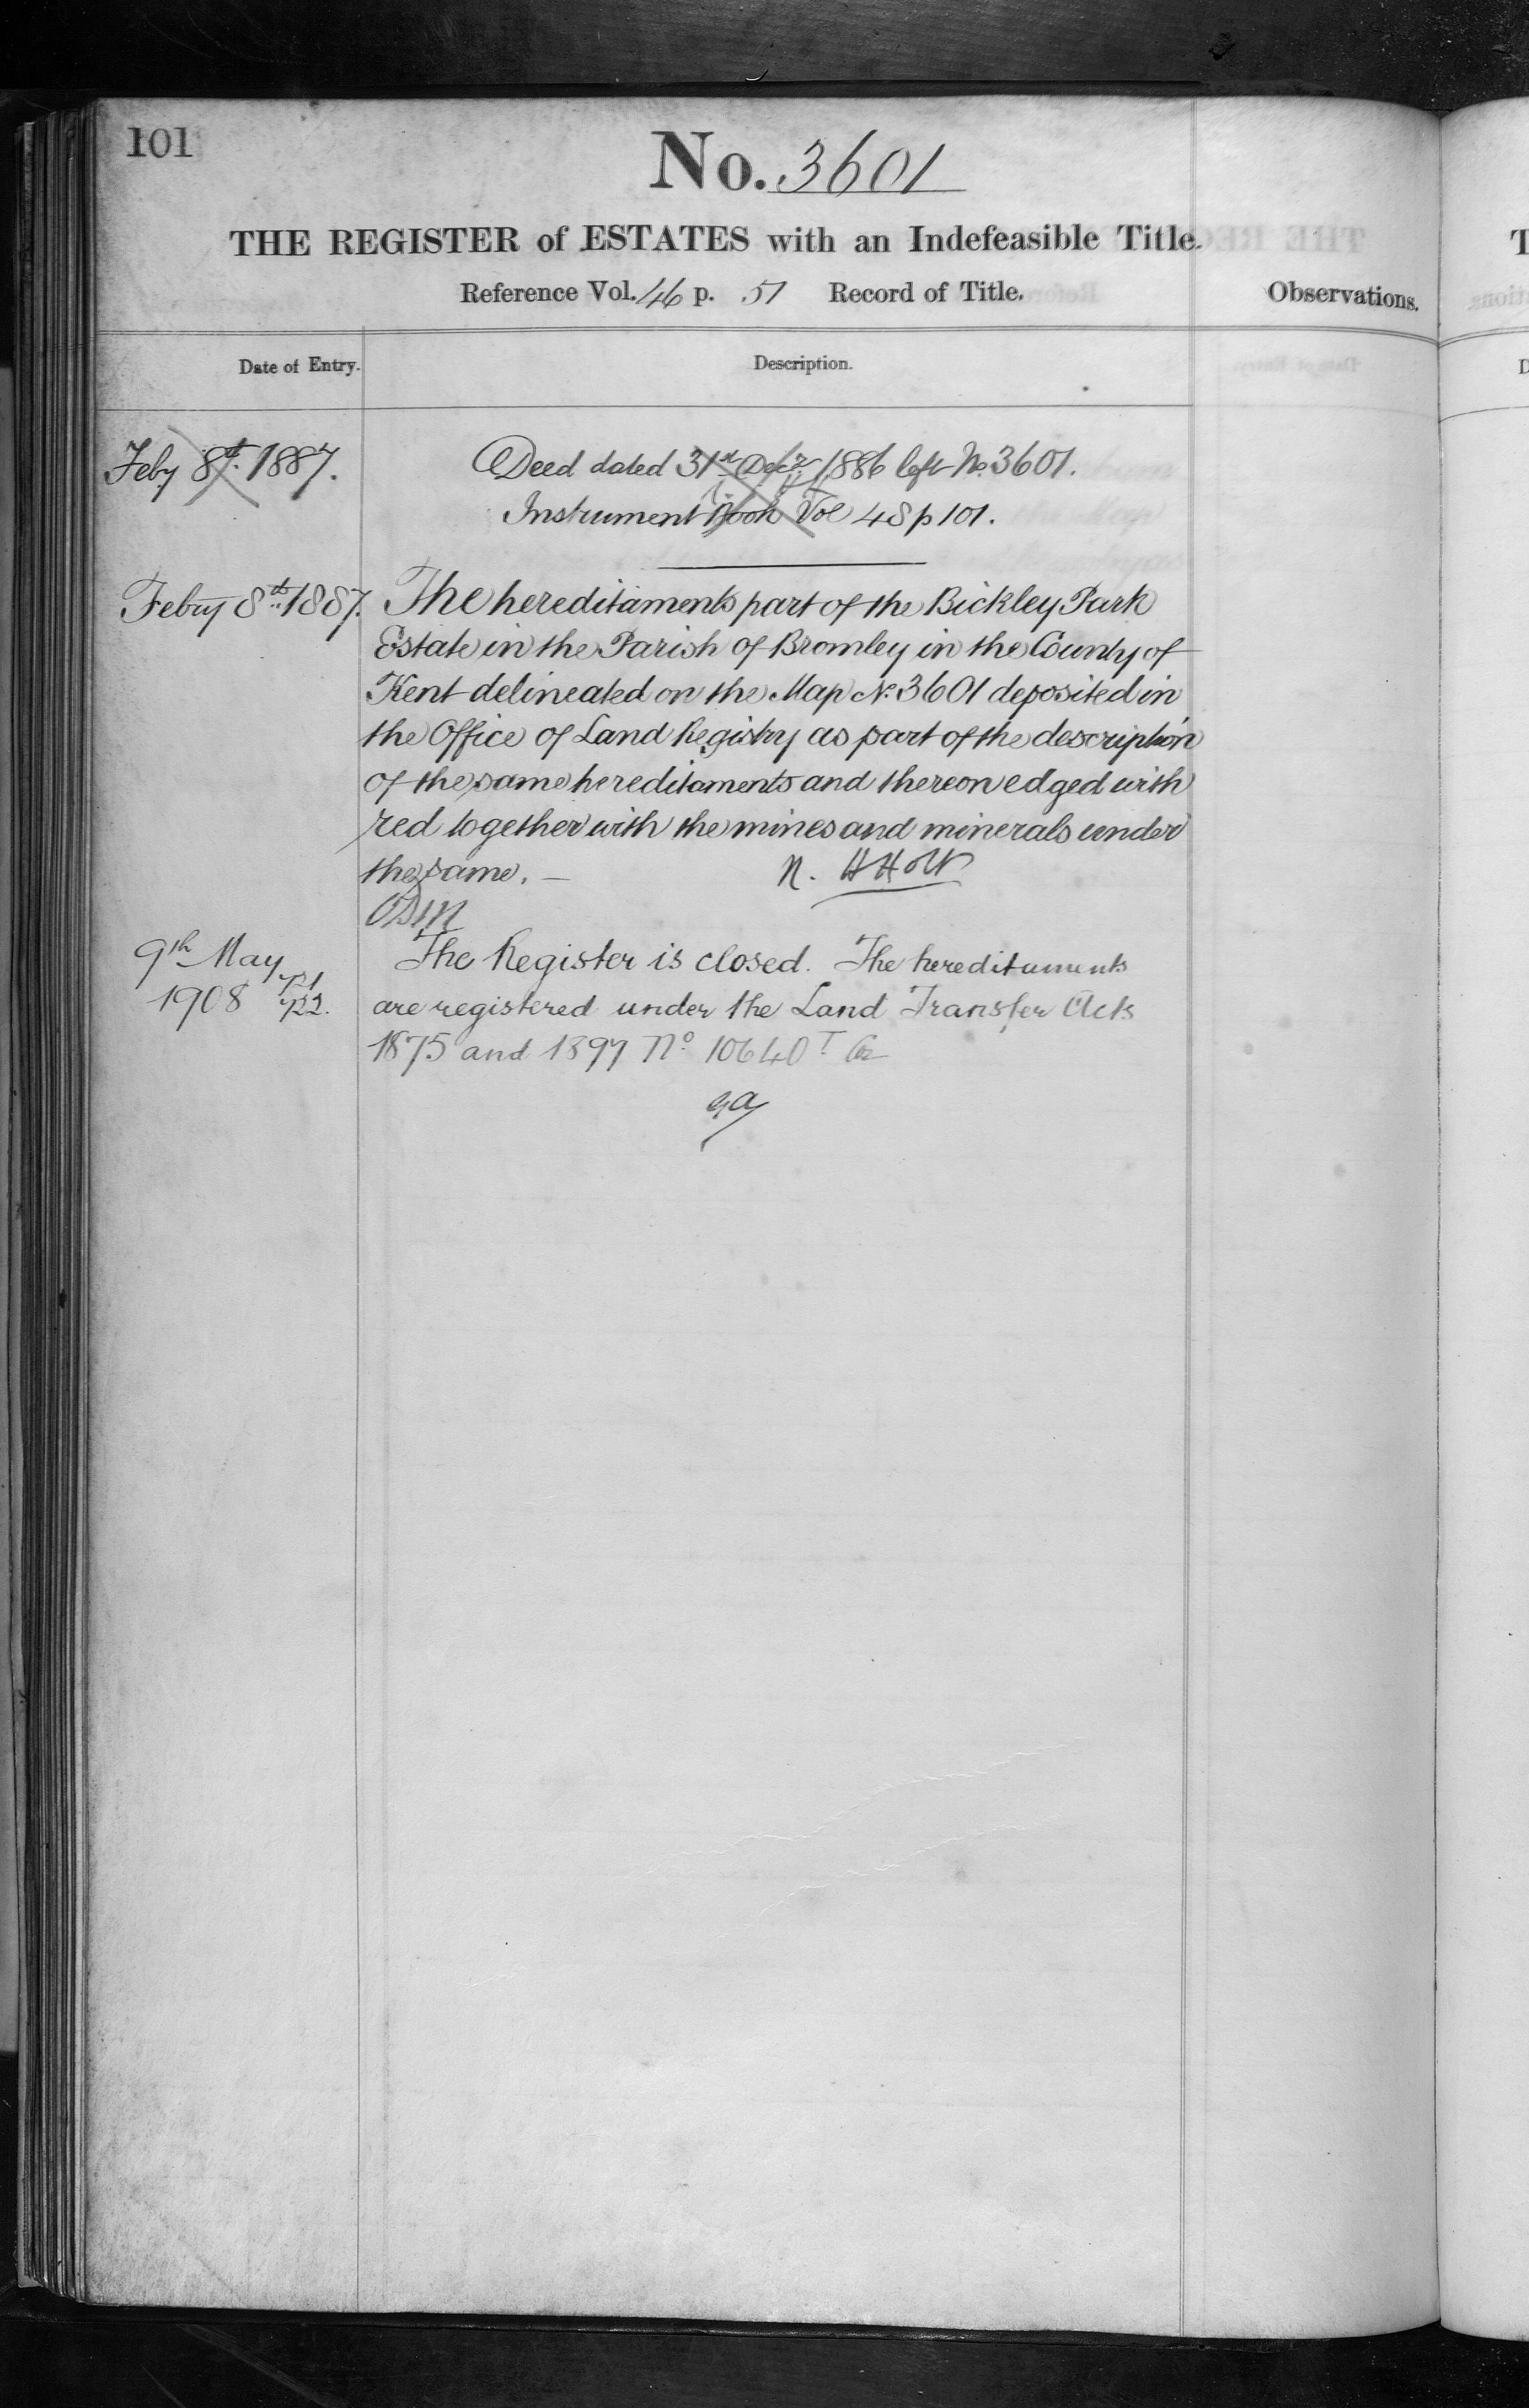 101
No. 3601
THE REGISTER of ESTATES with an Indefeasible Title.
Reference Vol. 46 p. 51 Record of Title.
Observations.
Date of Entry.
Description.
Feby 8th 1887.
Deed dated 31st Decr 1886 left No. 3601.
Instrument Book Vol 48 p 101.
Febry 8th 1887.
The hereditaments part of the Bickley Park
Estate in the Parish of Bromley in the County of
Kent delineated on the Map No. 3601 deposited in
the Office of Land Registry as part of the description
of the same hereditaments and thereon edged with
red together with the mines and minerals under
the same. —
N. H Holt
9th May
1908
The Register is closed. The hereditaments
are registered under the Land Transfer Acts
1875 and 1897 No 10640